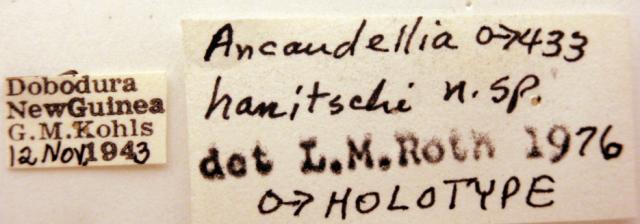 Dobodura
New Guinea
G.M.Kohls
12 Nov, 1943
Ancaudellia ♂ 433
hanitschi n. sp.
det L.M. Roth 1976
♂ HOLOTYPE